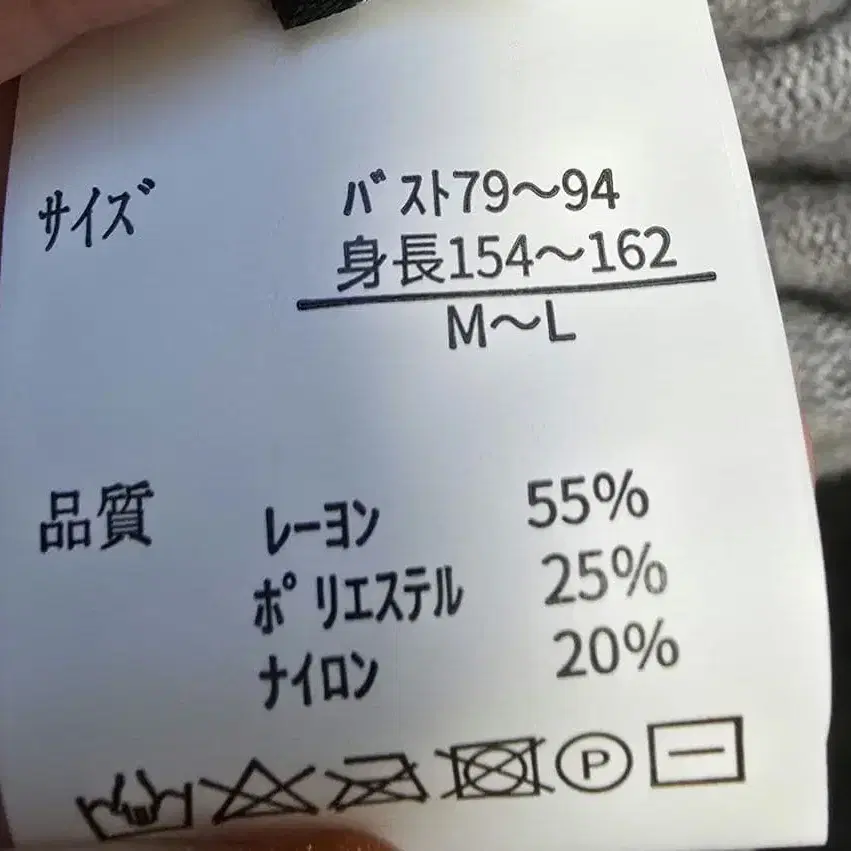 サイズ バスト79～94
身長154～162
M～L
品質 レーヨン 55%
ポリエステル 25%
ナイロン 20%
P